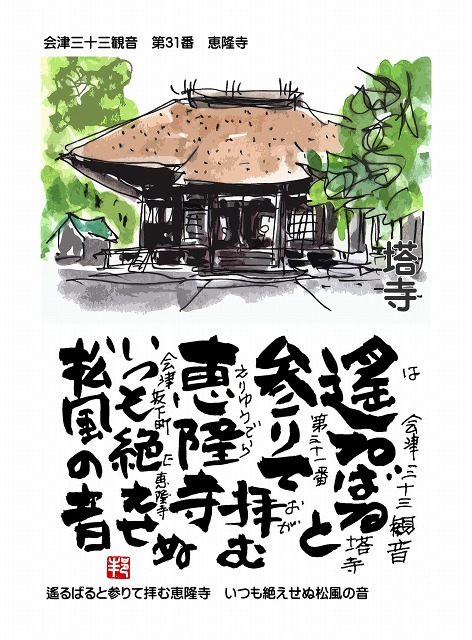 会津三十三観音　第31番　恵隆寺
塔寺
会津三十三観音
塔寺
遙かばると
第三十一番
参りて拝む
おが
えりゆうじ
恵隆寺
会津坂下町
に恵隆寺
いつも絶えせぬ
松風の音
遙るばると参りて拝む恵隆寺　いつも絶えせぬ松風の音